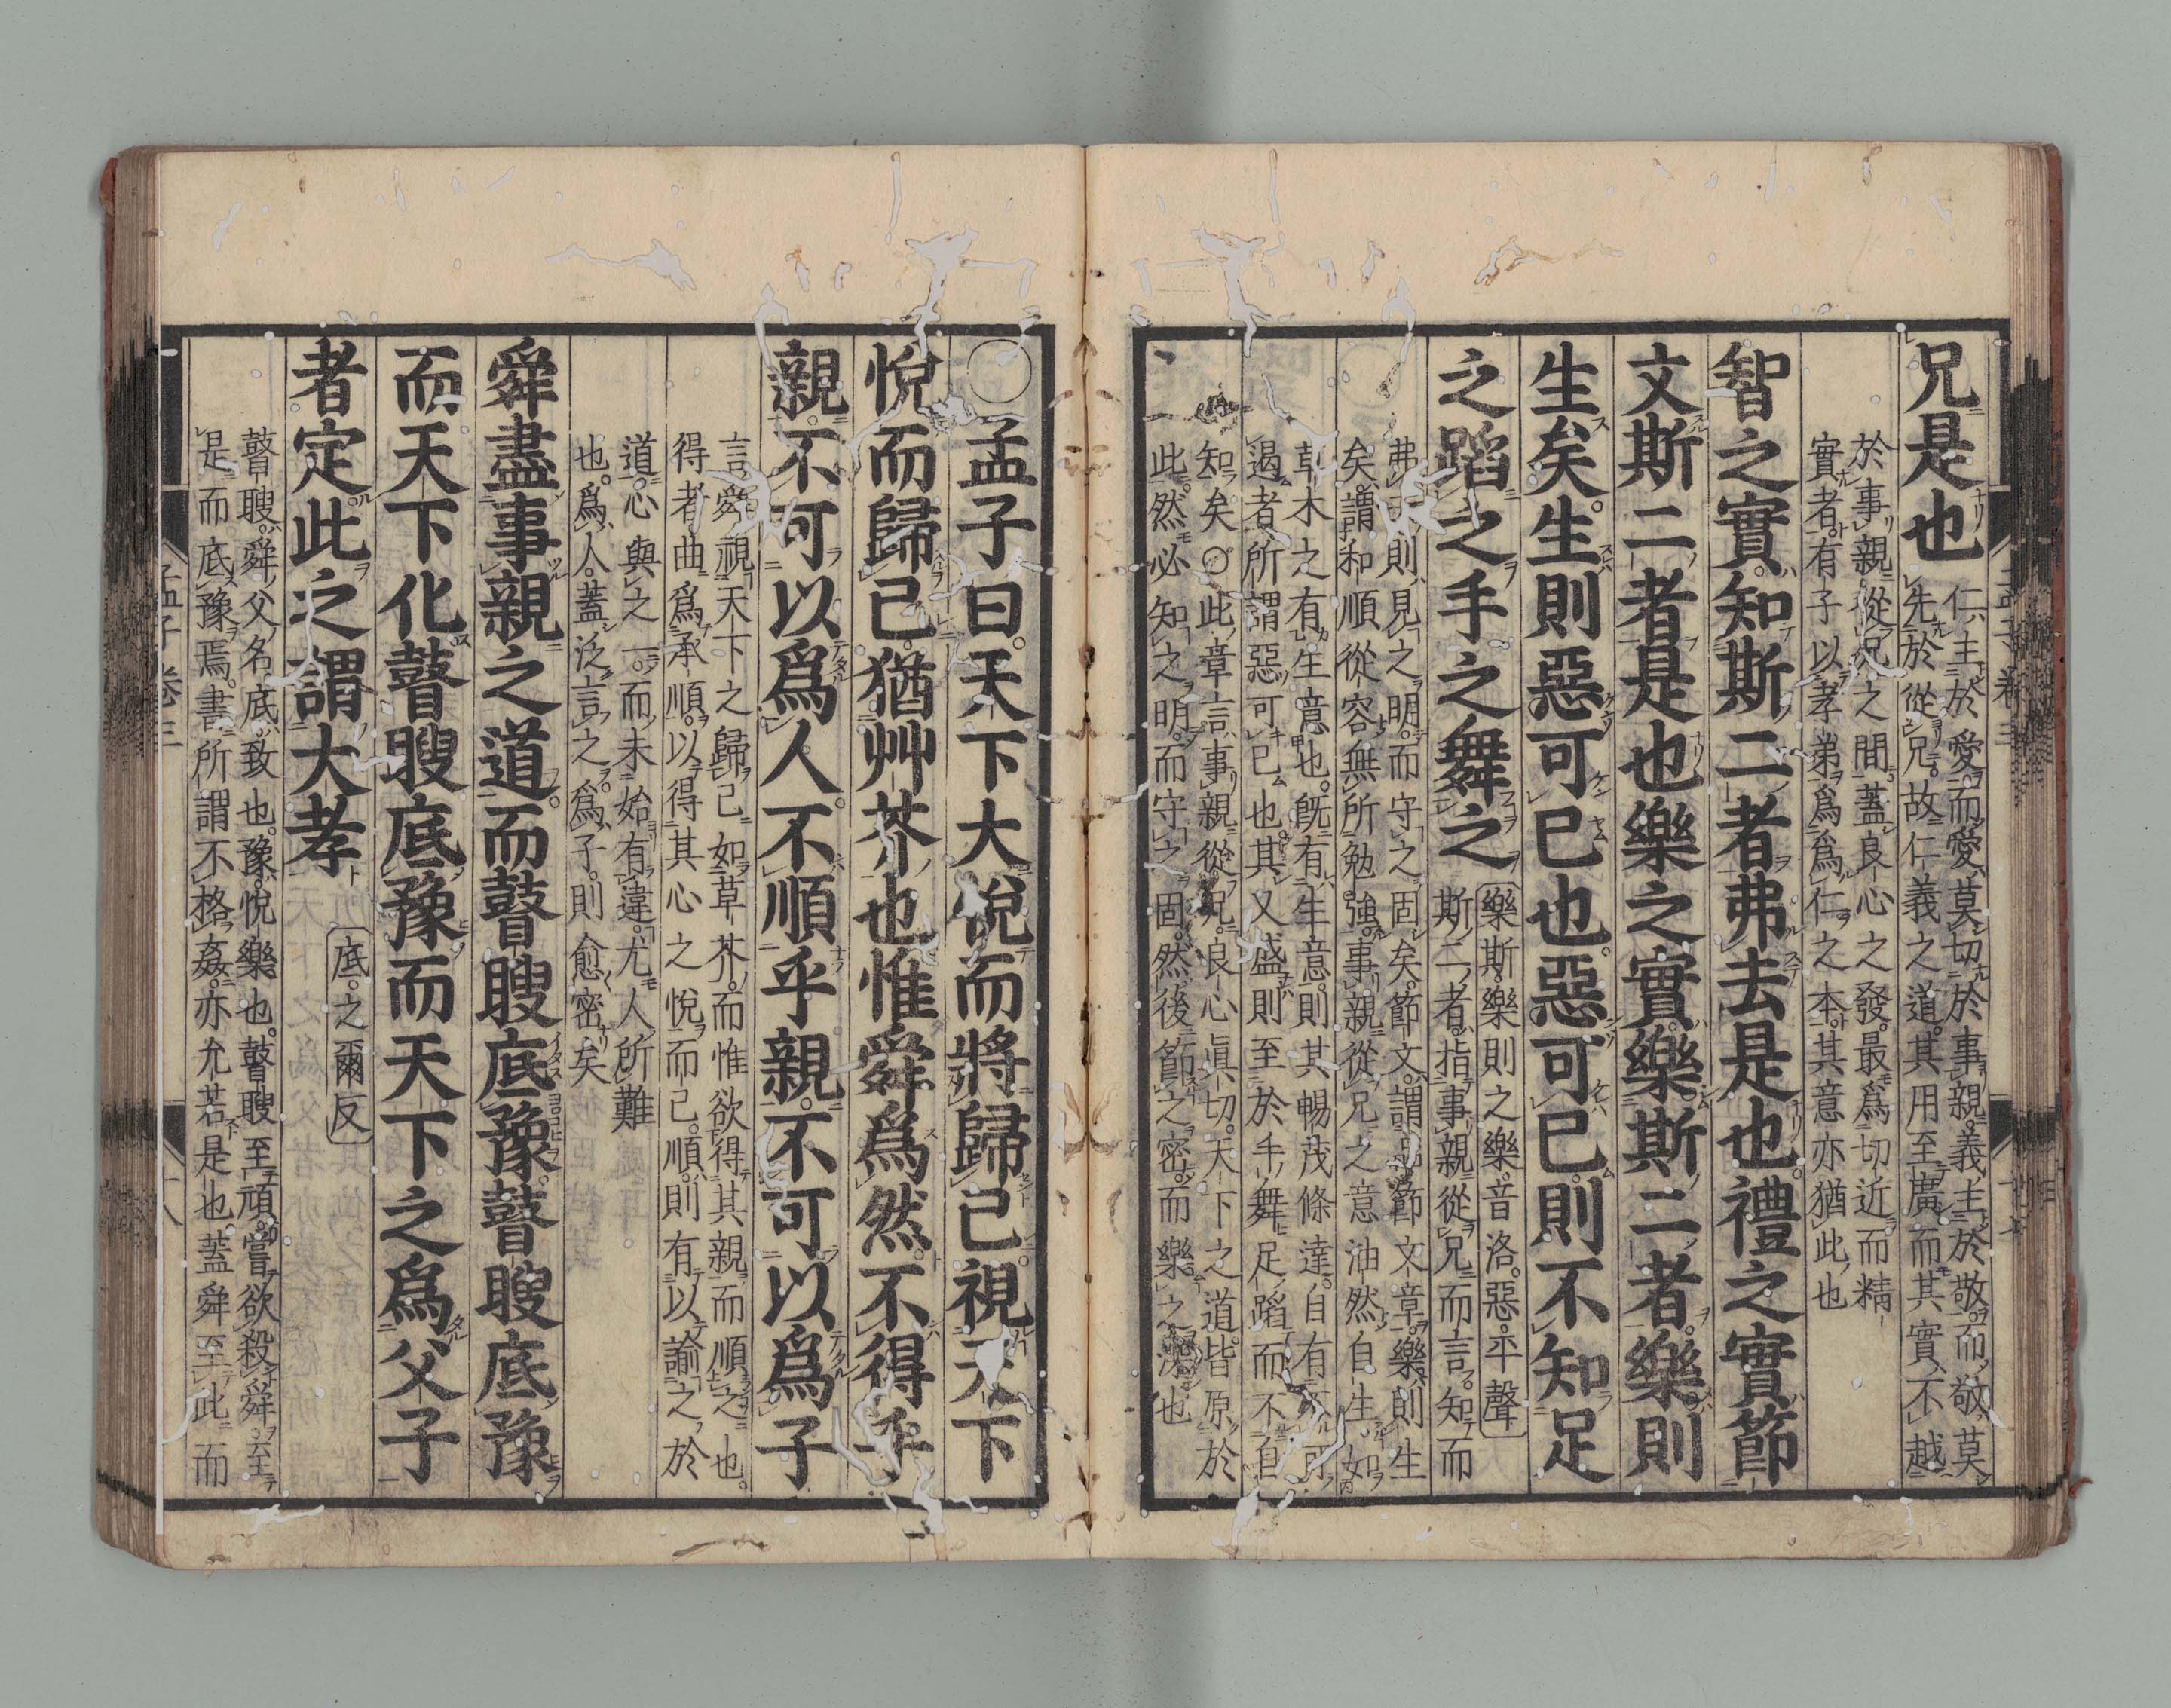 兄是也
仁主於愛而愛莫切於事親義主於敬而敬莫
先於從兄故仁義之道其用至廣而其實不越
於事親從兄之間蓋良心之發最爲切近而精
實者有子以孝弟爲爲仁之本其意亦猶此也
智之實知斯二者弗去是也禮之實節
文斯二者是也樂之實樂斯二者樂則
生矣生則惡可已也惡可已則不知足
之蹈之手之舞之
樂斯樂則之樂音洛惡平聲
斯二者指事親從兄而言知而
弗去則見之明而守之固矣節文謂品節文章樂則生
矣謂和順從容無所勉強事親從兄之意油然自生如
草木之有生意也旣有生意則其暢茂條達自有不可
遏者所謂惡可已也其又盛則至於手舞足蹈而不自
知矣○此章言事親從兄良心眞切天下之道皆原於
此然必知之明而守之固然後節之密而樂之深也
○孟子曰天下大悅而將歸己視天下
悅而歸己猶艸芥也惟舜爲然不得乎
親不可以爲人不順乎親不可以爲子
言舜視天下之歸己如草芥而惟欲得其親而順之也
得者曲爲承順以得其心之悅而已順則有以諭之於
道心與之一而未始有違尤人所難
也爲人蓋泛言之爲子則愈密矣
舜盡事親之道而瞽瞍底豫瞽瞍底豫
而天下化瞽瞍底豫而天下之爲父子
者定此之謂大孝
底之爾反
瞽瞍舜父名底致也豫悅樂也瞽瞍至頑嘗欲殺舜至
是而底豫焉書所謂不格姦亦允若是也蓋舜至此而
孟子卷三
十八